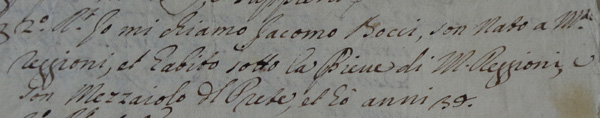 2.º R.e Io mi chiamo Jacomo Bocci, son nato a M.te
reggioni, et habito sotto la Pieve di M. Reggioni, e
son Mezzaiolo del Prete, et hò anni 39.